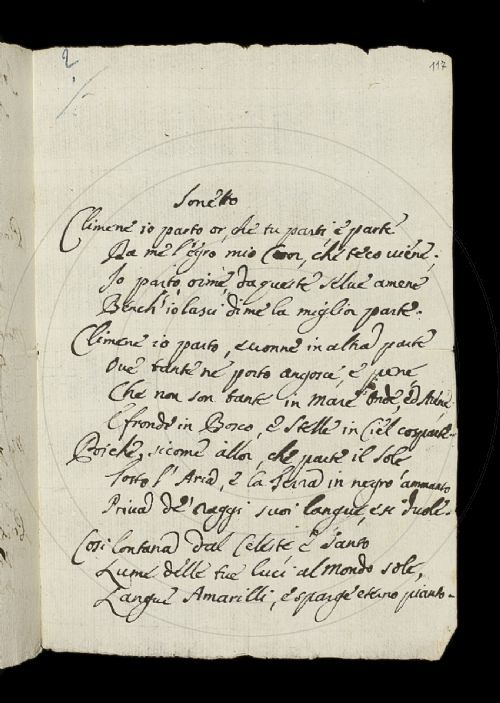 2
117
Sonetto
Climene io parto or, che tu parti, e parte
Da me l'egro mio Cor, che teco viene;
Io parto, oimè, da queste selve amene
Bench' io lasci di me la miglior parte.
Climene io parto, e vonne in altra parte
Ove tante ne porto angosce, e pene,
Che non son tante in Mare Onde, ed Arene
E fronde in Bosco, e Stelle in Ciel cosparte.
Poiche, sicome allor, che parte il Sole
Sotto l'Aria, e la Terra in negro ammanto
Priva de' raggi suoi langue, e si duole.
Così lontana dal Celeste e Santo
Lume delle tue luci al Mondo sole,
Langue Amarilli, e sparge eterno pianto.